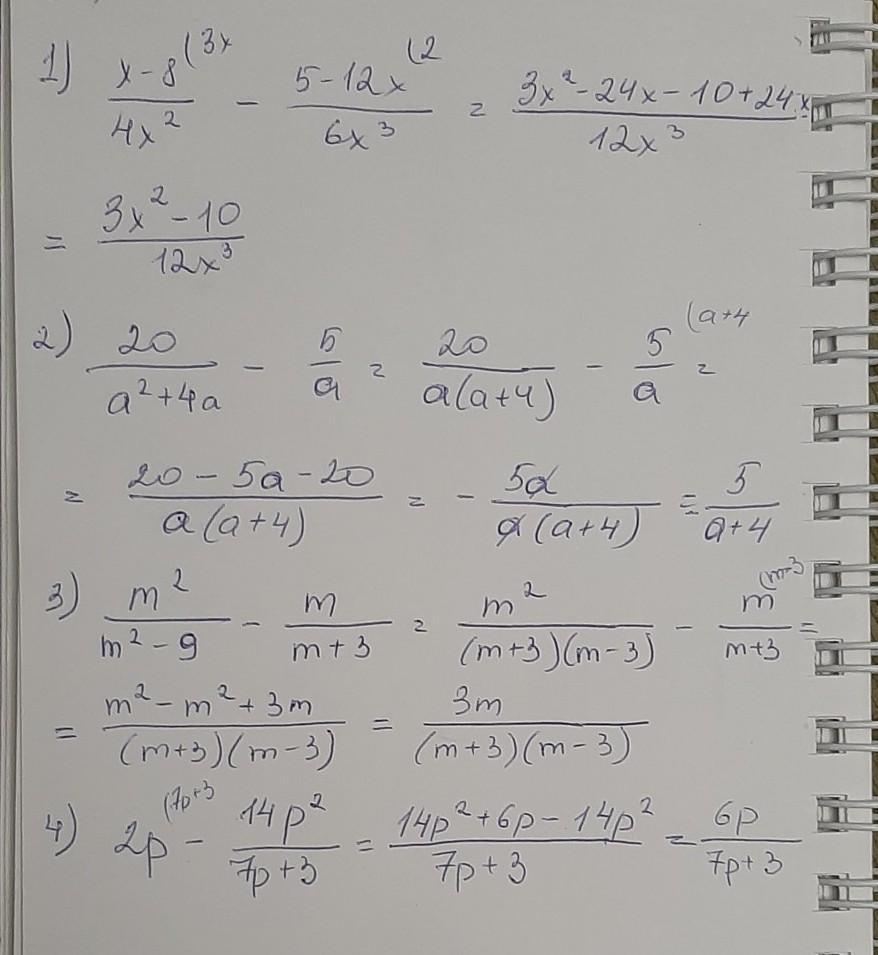 1) (x-8)/(4x²) (3x - (5-12x)/(6x³) (2 = (3x²-24x-10+24x)/(12x³) =
= (3x²-10)/(12x³)
2) 20/(a²+4a) - 5/a = 20/(a(a+4)) - 5/a (a+4 =
= (20-5a-20)/(a(a+4)) = - 5a/(a(a+4)) = 5/(a+4)
3) m²/(m²-9) - m/(m+3) = m²/((m+3)(m-3)) - m/(m+3) (m-3 =
= (m²-m²+3m)/((m+3)(m-3)) = 3m/((m+3)(m-3))
4) 2p (7p+3 - 14p²/(7p+3) = (14p²+6p-14p²)/(7p+3) = 6p/(7p+3)